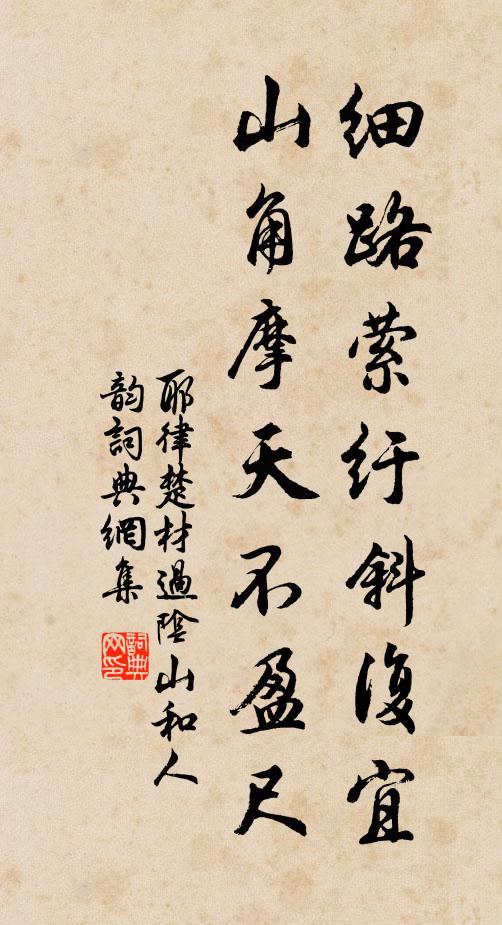 細路萦紆斜復直
山角摩天不盈尺
耶律楚材過陰山和人
韵詞典網集
詞典
网印